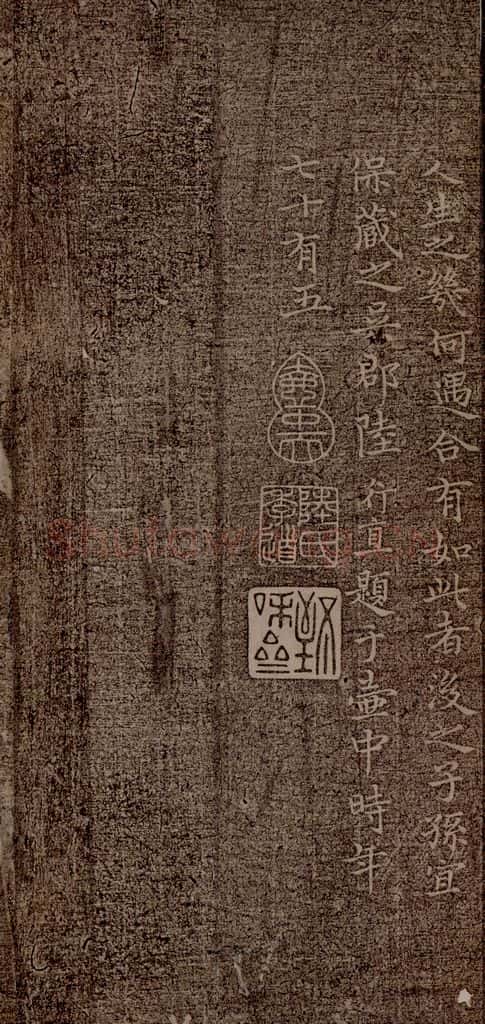 人生之幾何遇合有如此者後之子孫宜
保藏之吳郡陸行直題于壷中時年
七十有五
陸氏季道